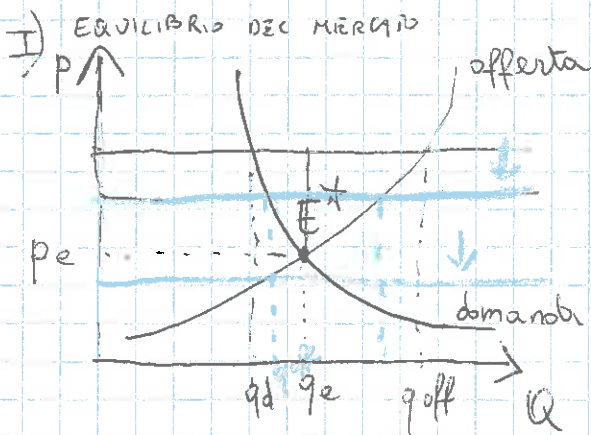 I) EQUILIBRIO DEL MERCATO
P
offerta
E*
pe
domanda
qd qe qoff
Q